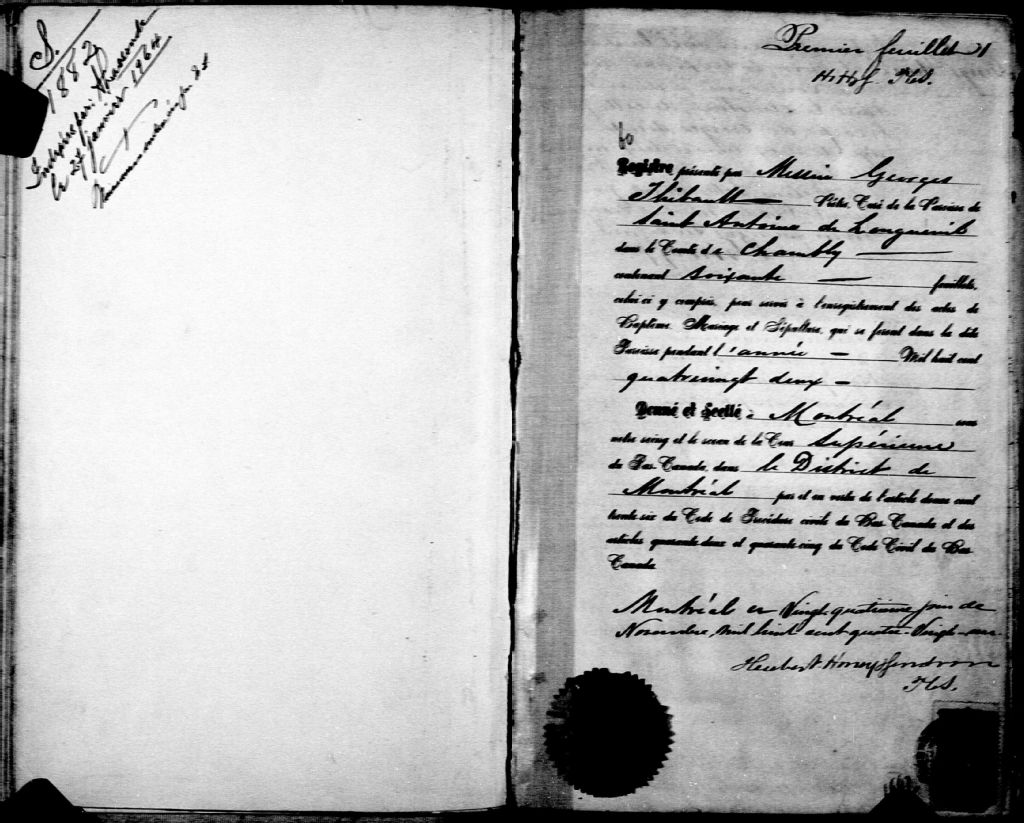 S.
1882
le 27 janvier 1964
Premier feuillet 1
60
Registre présenté par Messire Georges
Thibault Prêtre, Curé de la Paroisse de
Saint Antoine de Longueuil
dans le Comté de Chambly
contenant soixante feuillets,
celui-ci y compris, pour servir à l'enregistrement des actes de
Baptême, Mariage et Sépulture, qui se feront dans la dite
Paroisse pendant l'année Mil huit cent
quatrevingt deux
Donné et Scellé à Montréal sous
notre seing et le sceau de la Cour Supérieure
du Bas-Canada, dans le District de
Montréal par et en vertu de l'article douze cent
trente-six du Code de Procédure civile du Bas Canada et des
articles quarante-deux et quarante-cinq du Code Civil du Bas
Canada
Montréal ce Vingt-quatrième jour de
Novembre, mil huit cent quatre-vingt-un.